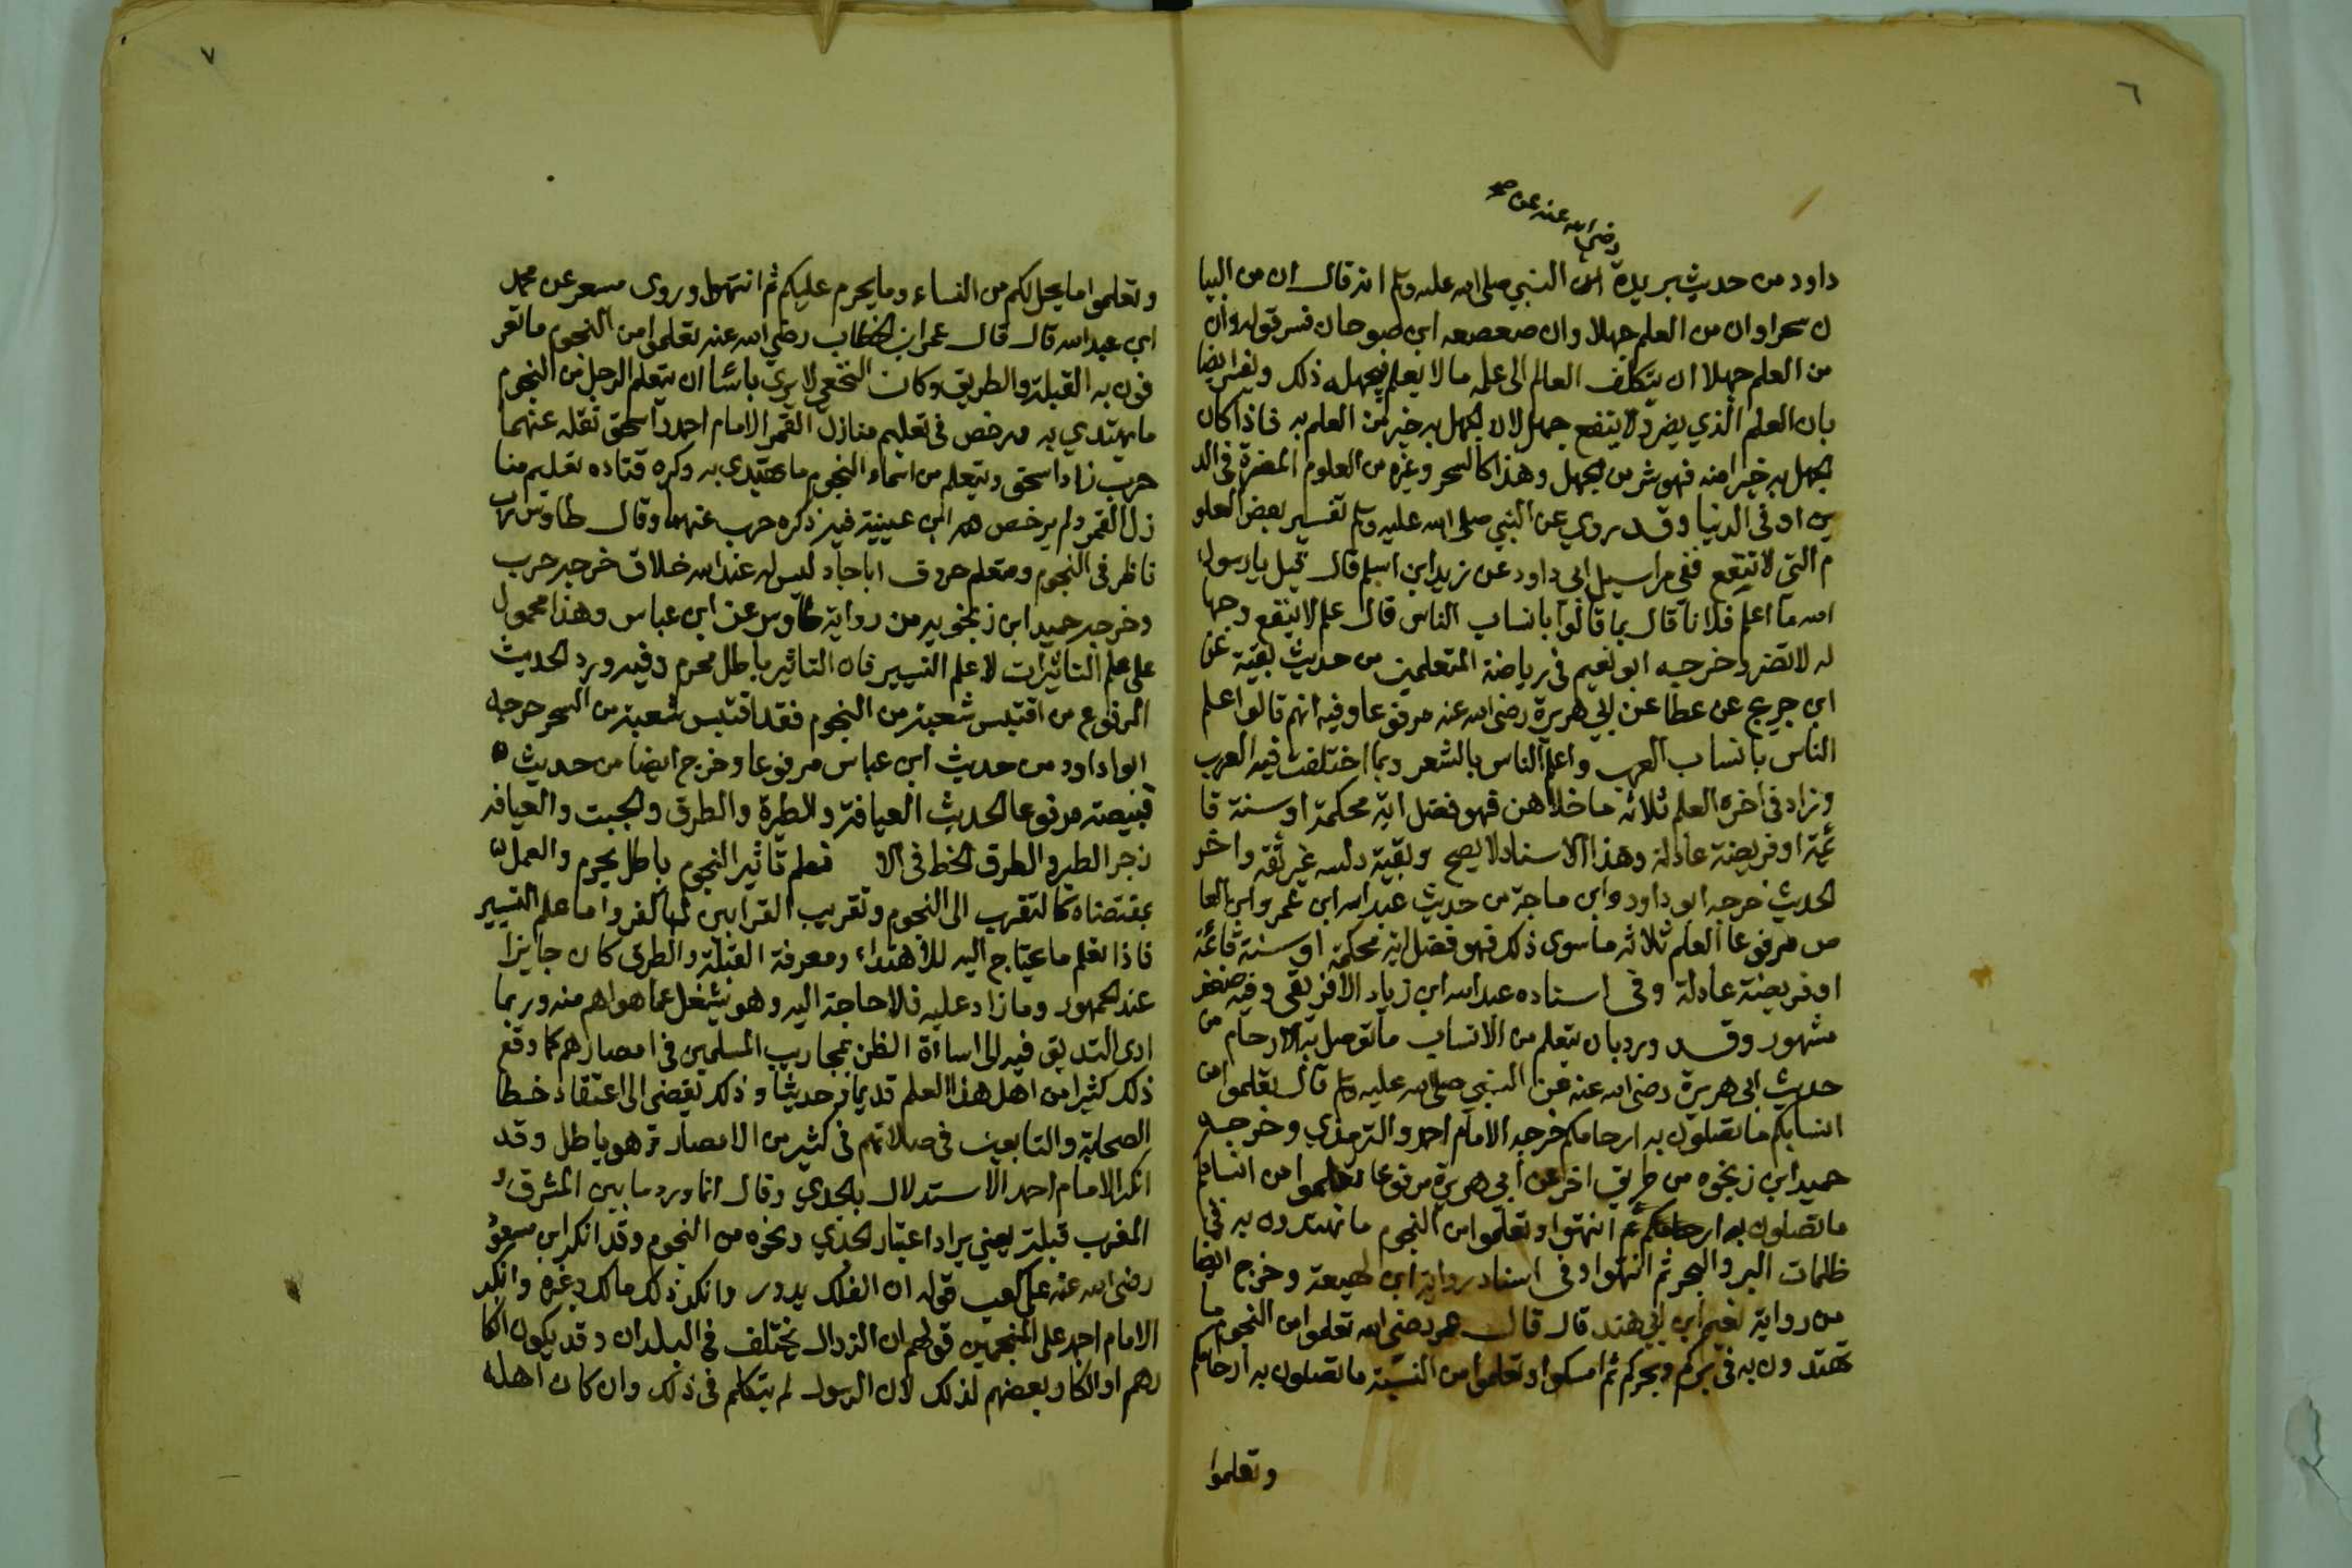 ٦
رضي الله عنه عن صح
داود من حديث بريدة ان النبي صلى الله عليه وسلم انه قال ان من البيا
ن سحرا وان من العلم جهلا وان صعصعه ابن صوحان فسر قوله وان
من العلم جهلا ان يتكلف العالم الى علمه ما لا يعلم فيجهله ذلك ويفسر ايضا
بان العلم الذي يضر ولا ينفع جهل لان الجهل به خير من العلم به فاذا كان
الجهل به خيرا منه فهو شر من الجهل وهذا كالسحر وغيره من العلوم المضرة في الد
ين او في الدنيا وقد روي عن النبي صلى الله عليه وسلم تفسير بعض العلو
م التي لا تنفع ففي مراسيل ابي داود عن زيد ابن اسلم قال قيل يا رسول
الله ما اعلم فلانا قال بما قالوا بانساب الناس قال علم لا ينفع وجها
له لا تضر وخرجه ابو نعيم في رياضة المتعلمين من حديث بقية عن
ابن جريج عن عطا عن ابي هريرة رضي الله عنه مرفوعا وفيه انهم قالوا اعلم
الناس بانساب العرب واعلم الناس بالشعر وبما اختلفت فيه العرب
وزاد في اخره العلم ثلاثه ما خلا هن فهو فضل اية محكمة او سنة قا
ئمة او فريضة عادلة وهذا الاسناد لا يصح وبقية دلسه غير ثقه واخر
الحديث خرجه ابو داود وابن ماجة من حديث عبد الله ابن عمر وابن العا
ص مرفوعا العلم ثلاثه ما سوى ذلك فهو فضل اية محكمة او سنة قائمة
او فريضة عادلة وفى اسناده عبد الله ابن زياد الافريقي وفيه ضعف
مشهور وقد ورد بان يتعلم من الانساب ما توصل به الارحام من
حديث ابي هريرة رضي الله عنه عن النبي صلى الله عليه وسلم قال تعلموا من
انسابكم ما تصلون به ارحامكم خرجه الامام احمد والترمذي وخرجه
حميد ابن زنجوه من طريق اخر عن ابي هريرة مرفوعا تعلموا من انسابكم
ما تصلون به ارحامكم ثم انتهوا وتعلموا من النجوم ما تهتدون به في
ظلمات البر والبحر ثم انتهوا وفى اسناد رواية ابن لهيعة وخرج ايضا
من رواية نعيم ابن ابي هند قال قال عمر رضي الله تعلموا من النجوم ما
تهتدون به في بركم وبحركم ثم امسكوا وتعلموا من النسبة ما تصلون به ارحامكم
وتعلموا
٧
وتعلموا ما يحل لكم من النساء وما يحرم عليكم ثم انتهوا وروى مسعر عن محمد
ابن عبد الله قال قال عمر ابن الخطاب رضي الله عنه تعلموا من النجوم ما تعر
فون به القبلة والطريق وكان النخعي لا يري باسا ان يتعلم الرجل من النجوم
ما يهتدي به ورخص في تعليم منازل القمر الامام احمد واسحق نقله عنهما
حرب زاد اسحق ويتعلم من اسماء النجوم ما يهتدي به وكره قتاده تعليم منا
زل القمر ولم يرخص ابن عيينية فيه ذكره حرب عنهما وقال طاوس رب
ناظر في النجوم ومتعلم حروف اباجاد ليس له عند الله خلاق خرجه حرب
وخرجه حميد ابن زنجويه من رواية طاوس عن ابن عباس وهذا محمول
على علم التاثيرات لا علم التسيير فان التاثير باطل محرم وفيه ورد الحديث
المرفوع من اقتبس شعبة من النجوم فقد اقتبس شعبة من السحر خرجه
ابوا داود من حديث ابن عباس مرفوعا وخرج ايضا من حديث
قبيصة مرفوعا الحديث العيافة والطيرة والطرق والجبت والعيافه
زجر الطير والطرق الخط في الا فعلم تاثير النجوم باطل يحرم والعمل
بمقتضاه كالتقرب الى النجوم وتقريب القرابين لها كفر واما علم التسيير
فاذا تعلم ما يحتاج اليه للاهتداء ومعرفة القبلة والطرق كان جايزا
عند الجمهور وما زاد عليه فلا حاجة اليه وهو يشغل عما هو اهم منه وربما
ادى التدقيق فيه الى اساءة الظن بمحاريب المسلمين في امصارهم كما وقع
ذلك كثيرا من اهل هذا العلم قديما وحديثا وذلك يفضى الى اعتقاد خطا
الصحابة والتابعين في صلاتهم في كثير من الامصار وهو باطل وقد
انكر الامام احمد الاستدلال بالجدي وقال انما ورد ما بين المشرق و
المغرب قبلة يعني يراد اعتبار الجدي ونحوه من النجوم وقد انكر ابن مسعود
رضي الله عنه على كعب قوله ان الفلك يدور وانكر ذلك مالك وغيره وانكر
الامام احمد على المنجمين قولهم ان الزوال يختلف في البلدان وقد يكون انكا
رهم او انكار بعضهم لذلك لان الرسول لم يتكلم في ذلك وان كان اهله